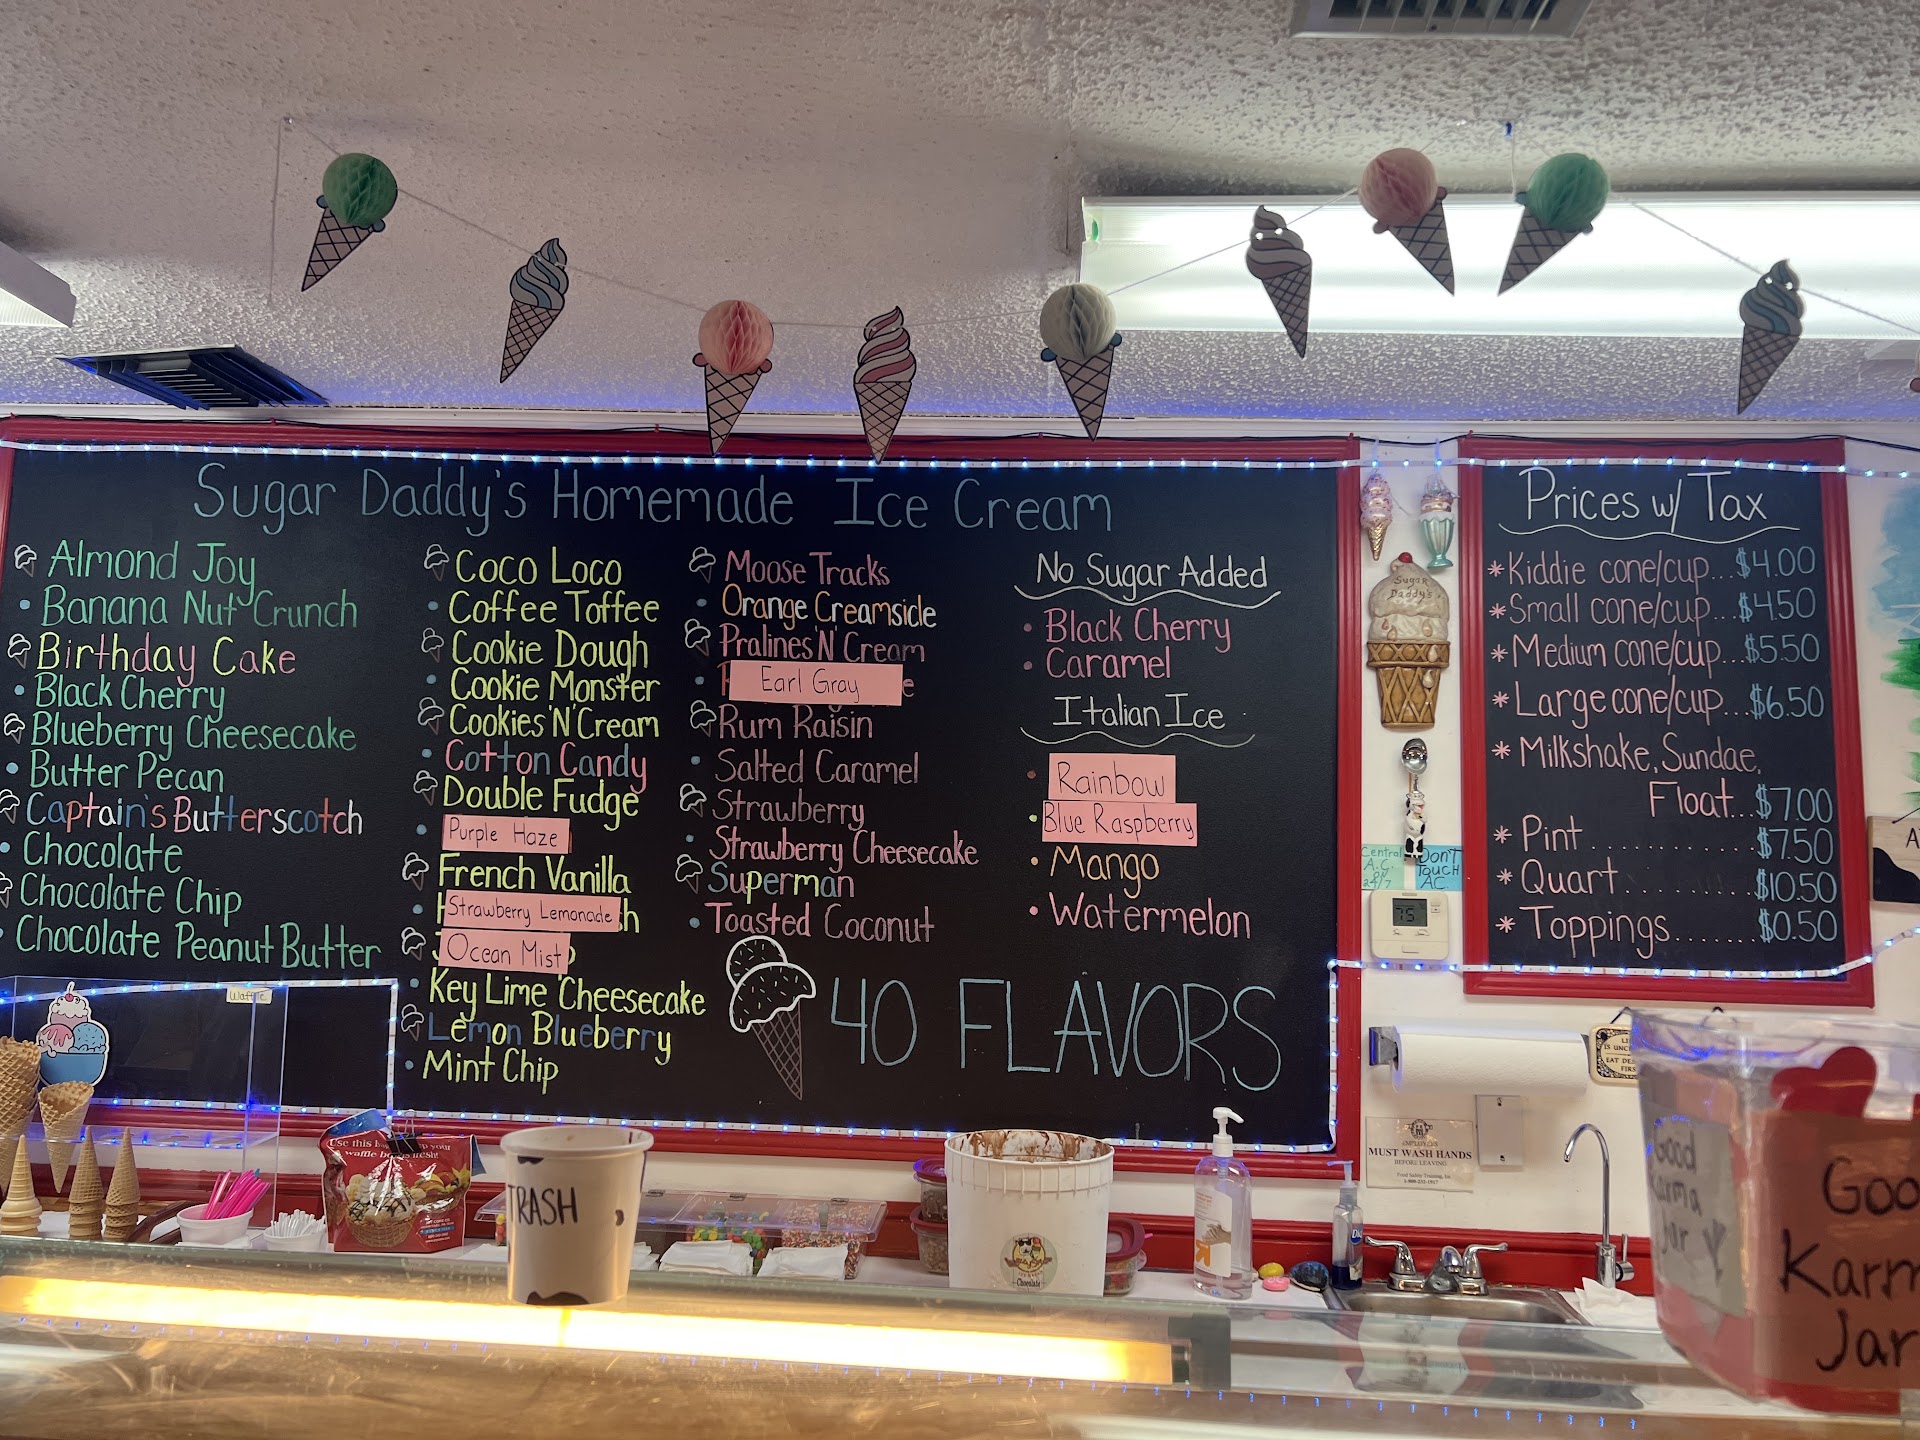 Sugar Daddy's Homemade Ice Cream
Almond Joy
Banana Nut Crunch
Birthday Cake
Black Cherry
Blueberry Cheesecake
Butter Pecan
Captain's Butterscotch
Chocolate
Chocolate Chip
Chocolate Peanut Butter
Coco Loco
Coffee Toffee
Cookie Dough
Cookie Monster
Cookies 'N' Cream
Cotton Candy
Double Fudge
Purple Haze
French Vanilla
Strawberry Lemonade
Ocean Mist
Key Lime Cheesecake
Lemon Blueberry
Mint Chip
Moose Tracks
Orange Creamsicle
Pralines 'N' Cream
Earl Gray
Rum Raisin
Salted Caramel
Strawberry
Strawberry Cheesecake
Superman
Toasted Coconut
No Sugar Added
Black Cherry
Caramel
Italian Ice
Rainbow
Blue Raspberry
Mango
Watermelon
40 FLAVORS
Sugar
Daddy's
Central
A.C.
ON
24/7
DON'T
TOUCH
AC
75
Prices w/ Tax
*Kiddie cone/cup...$4.00
*Small cone/cup...$4.50
*Medium cone/cup...$5.50
*Large cone/cup...$6.50
*Milkshake, Sundae,
Float...$7.00
*Pint............$7.50
*Quart........$10.50
*Toppings.......$0.50
Use this
your
waffle
fresh!
TRASH
Chocolate
EMPLOYEES
MUST WASH HANDS
BEFORE LEAVING
Food Safety Training, Inc.
1-800-232-1917
EAT
FIRS
Good
Karma
Jar
Goo
Karm
Jar
A